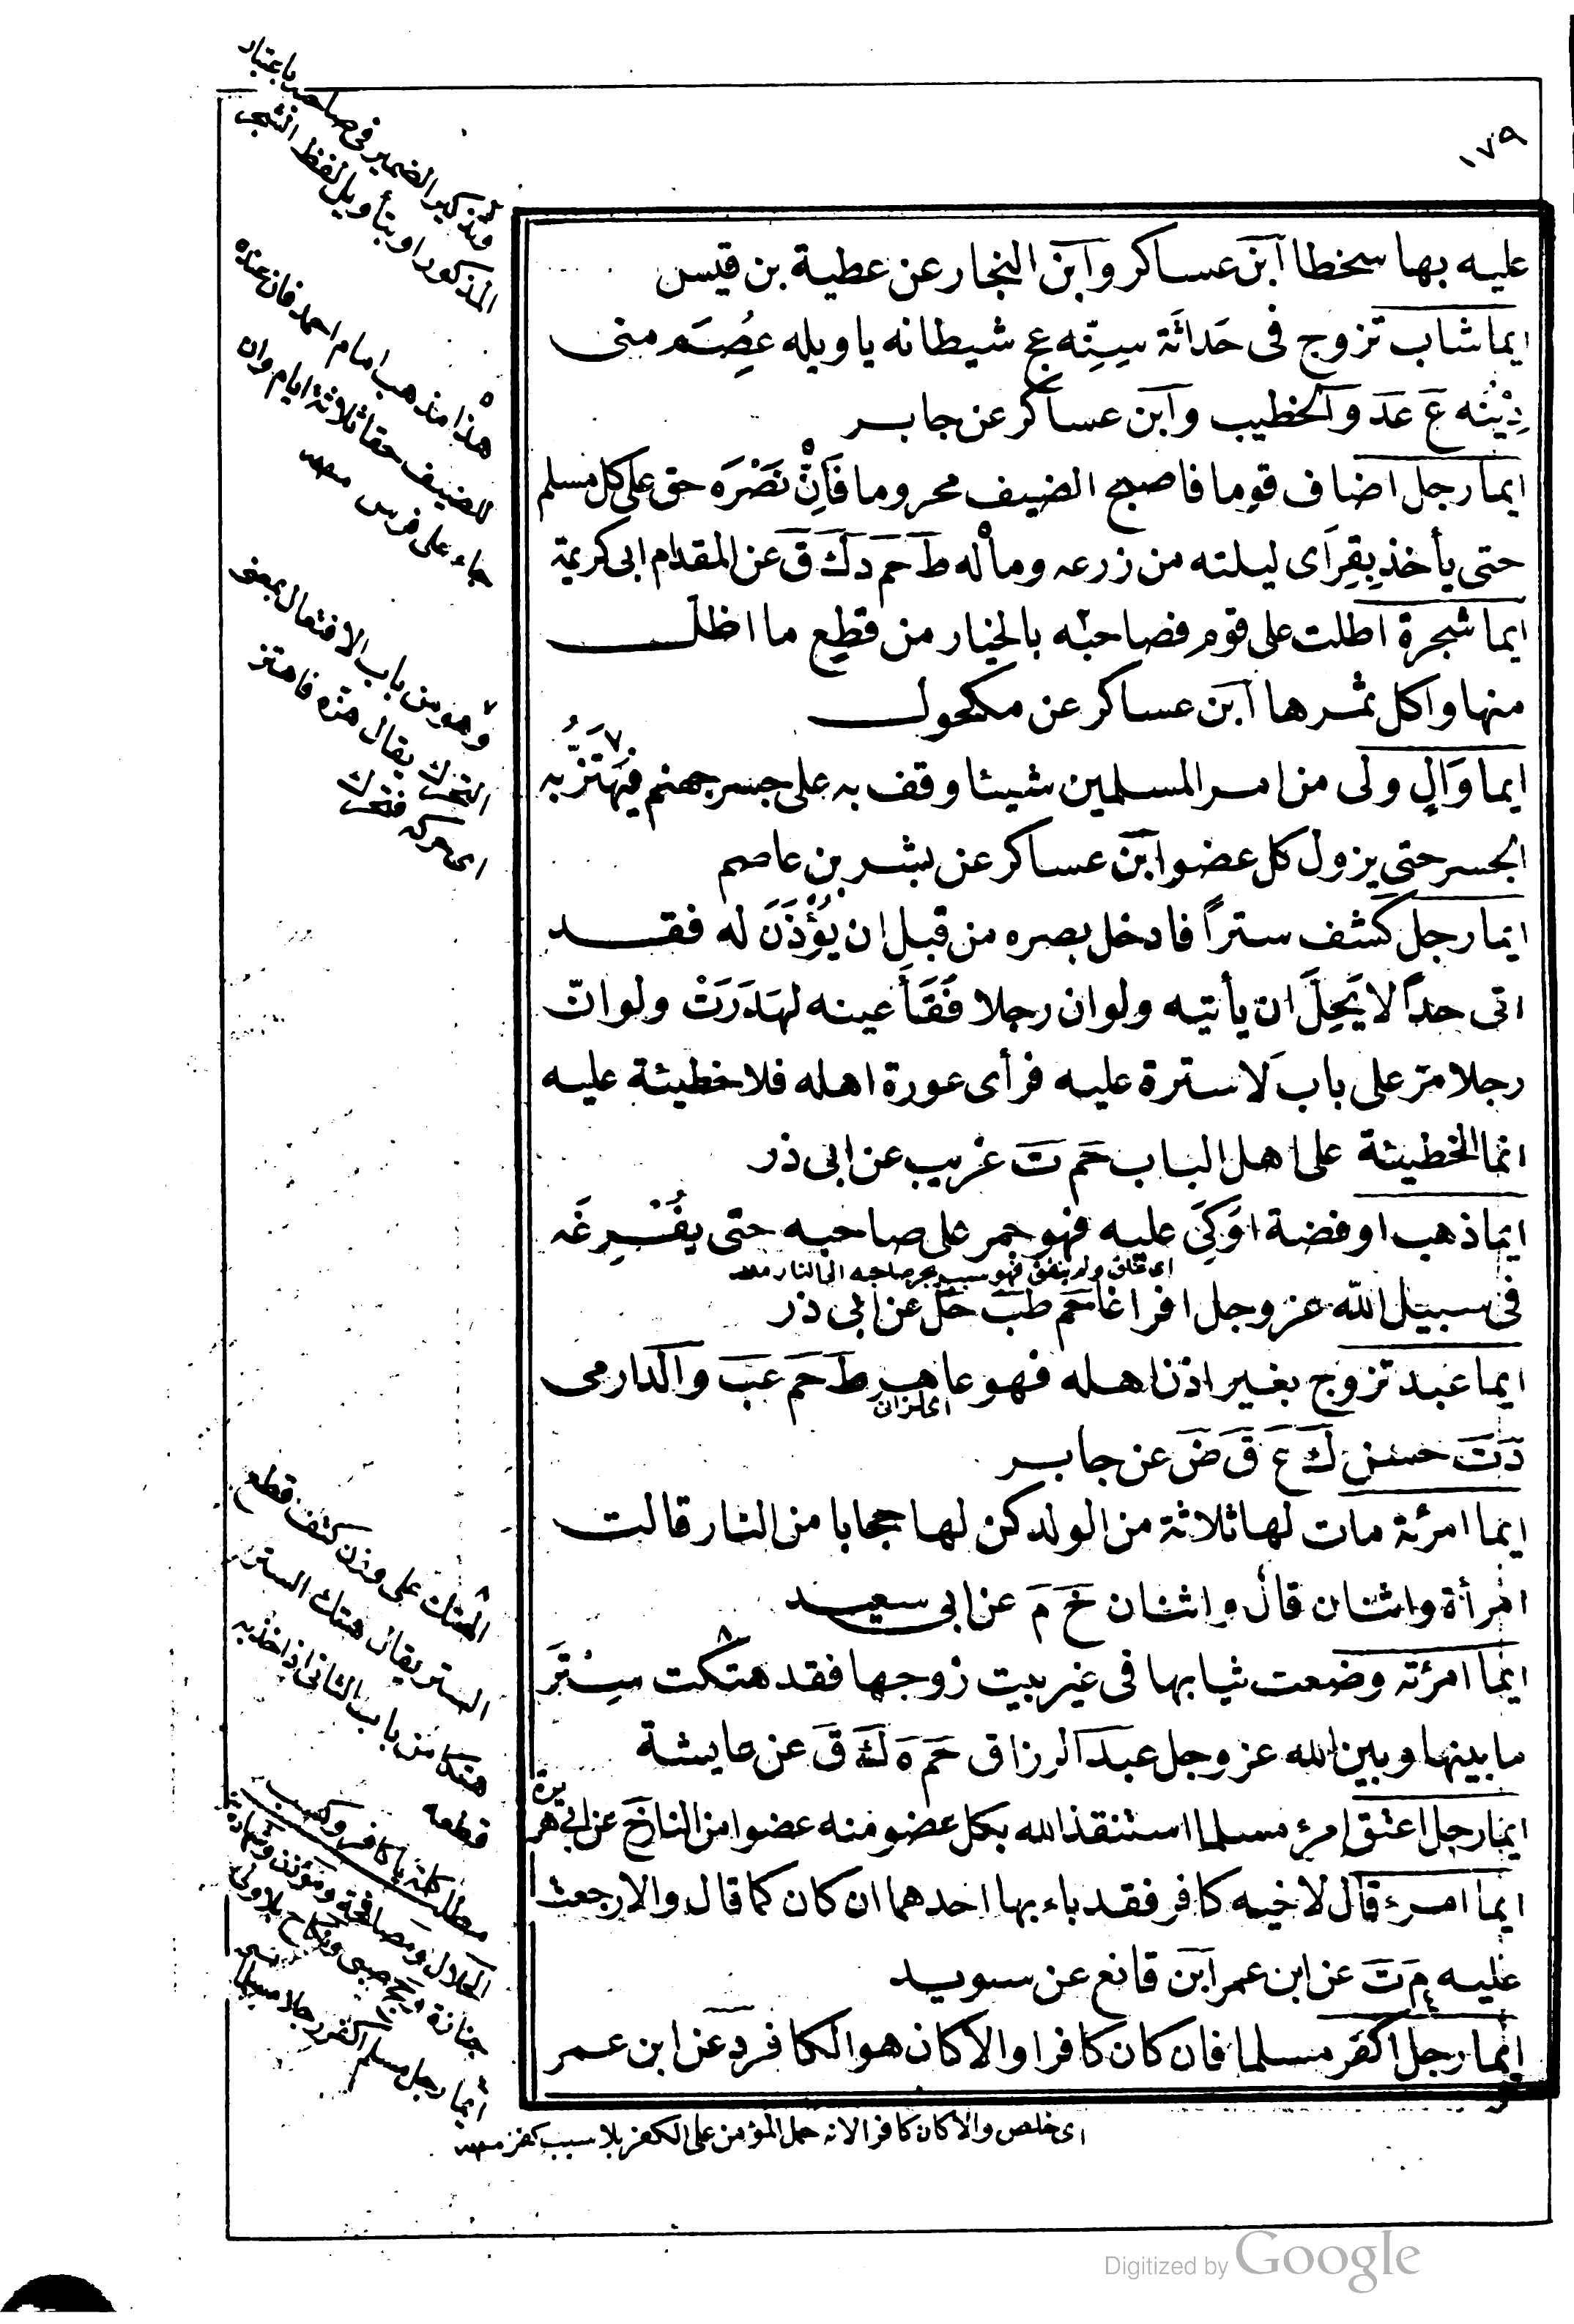 ١٧٩
عليه بها سخطا ابن عساكر وابن النجار عن عطية بن قيس
ايما شاب تزوج فى حَداثَة سِنِّه عج شيطانه يا ويله عُصِمَ منى
دِيْنُه عَ عد والخطيب وابن عساكر عن جابر
ايما رجل اضاف قوما فاصبح الضيف محروما فَاِنَّ نَصْرَه حق على كل مسلم
حتى يأخذ بِقِرَاى ليلته من زرعه وماله ط حم د ك ق عن المقدام ابى كريمة
ايما شجرة اظلت على قوم فصاحبُه بالخيار من قطع ما اظل
منها واكل ثمرها ابن عساكر عن مكحول
ايما وَالٍ ولى من امر المسلمين شيئا وقف به على جسر جهنم فيَهْتَزُّ به
الجسر حتى يزول كل عضو ابن عساكر عن بشر بن عاصم
ايما رجل كشف ستراً فادخل بصره من قبل ان يُؤْذَنَ له فقد
اتى حداً لا يَحِلّ ان يأتيه ولو ان رجلا فَقَأَ عينه لهَدَرَتْ ولو انّ
رجلا مرّ على باب لا سترة عليه فرأى عورة اهله فلا خطيئة عليه
انما الخطيئة على اهل الباب حم ت غريب عن ابى ذر
ايما ذهب او فضة اوكى عليه فهو جمر على صاحبه حتى يُفْرِغَه
فى سبيل الله عز وجل افراغا حم طب حل عن ابى ذر
ايما عبد تزوج بغير اذن اهله فهو عاهر ط حم عب والدارمى
اى زان
د ت حسن ك ع ق ض عن جابر
ايما امرئة مات لها ثلاثة من الولد كن لها حجابا من النار قالت
امرأة واثنان قال واثنان خ م عن ابى سعيد
ايما امرئة وضعت ثيابها فى غير بيت زوجها فقد هتكت سِتْرَ
ما بينها وبين الله عز وجل عبد الرزاق حم ه ك ق عن عايشة
ايما رجل اعتق امرء مسلما استنقذ الله بكل عضو منه عضوا من النار خ عن ابى هريرة
ايما امرء قال لاخيه كافر فقد باء بها احدهما ان كان كما قال والا رجعت
عليه م ت عن ابن عمر ابن قانع عن سويد
ايما رجل اكفر مسلما فان كان كافرا والا كان هو الكافر د عن ابن عمر
اى خلص والا كان كافرا لانه حمل المؤمن على الكفر بلا سبب كفر
وتذكير الضمير فى صاحبه باعتبار
المذكور او بتأويل لفظ الشجر
هذا مذهب امام احمد فان عنده
للضيف حقا ثلاثة ايام وان
جاء على فرس
وهو من باب الافتعال بمعنى
التحرك يقال هزه فاهتز
اى حركه فتحرك
الهتك على وزن كشف قطع
الستر يقال هتك الستر
هتكا من باب الثانى اذا اخذ به
قطعه
Digitized by Google